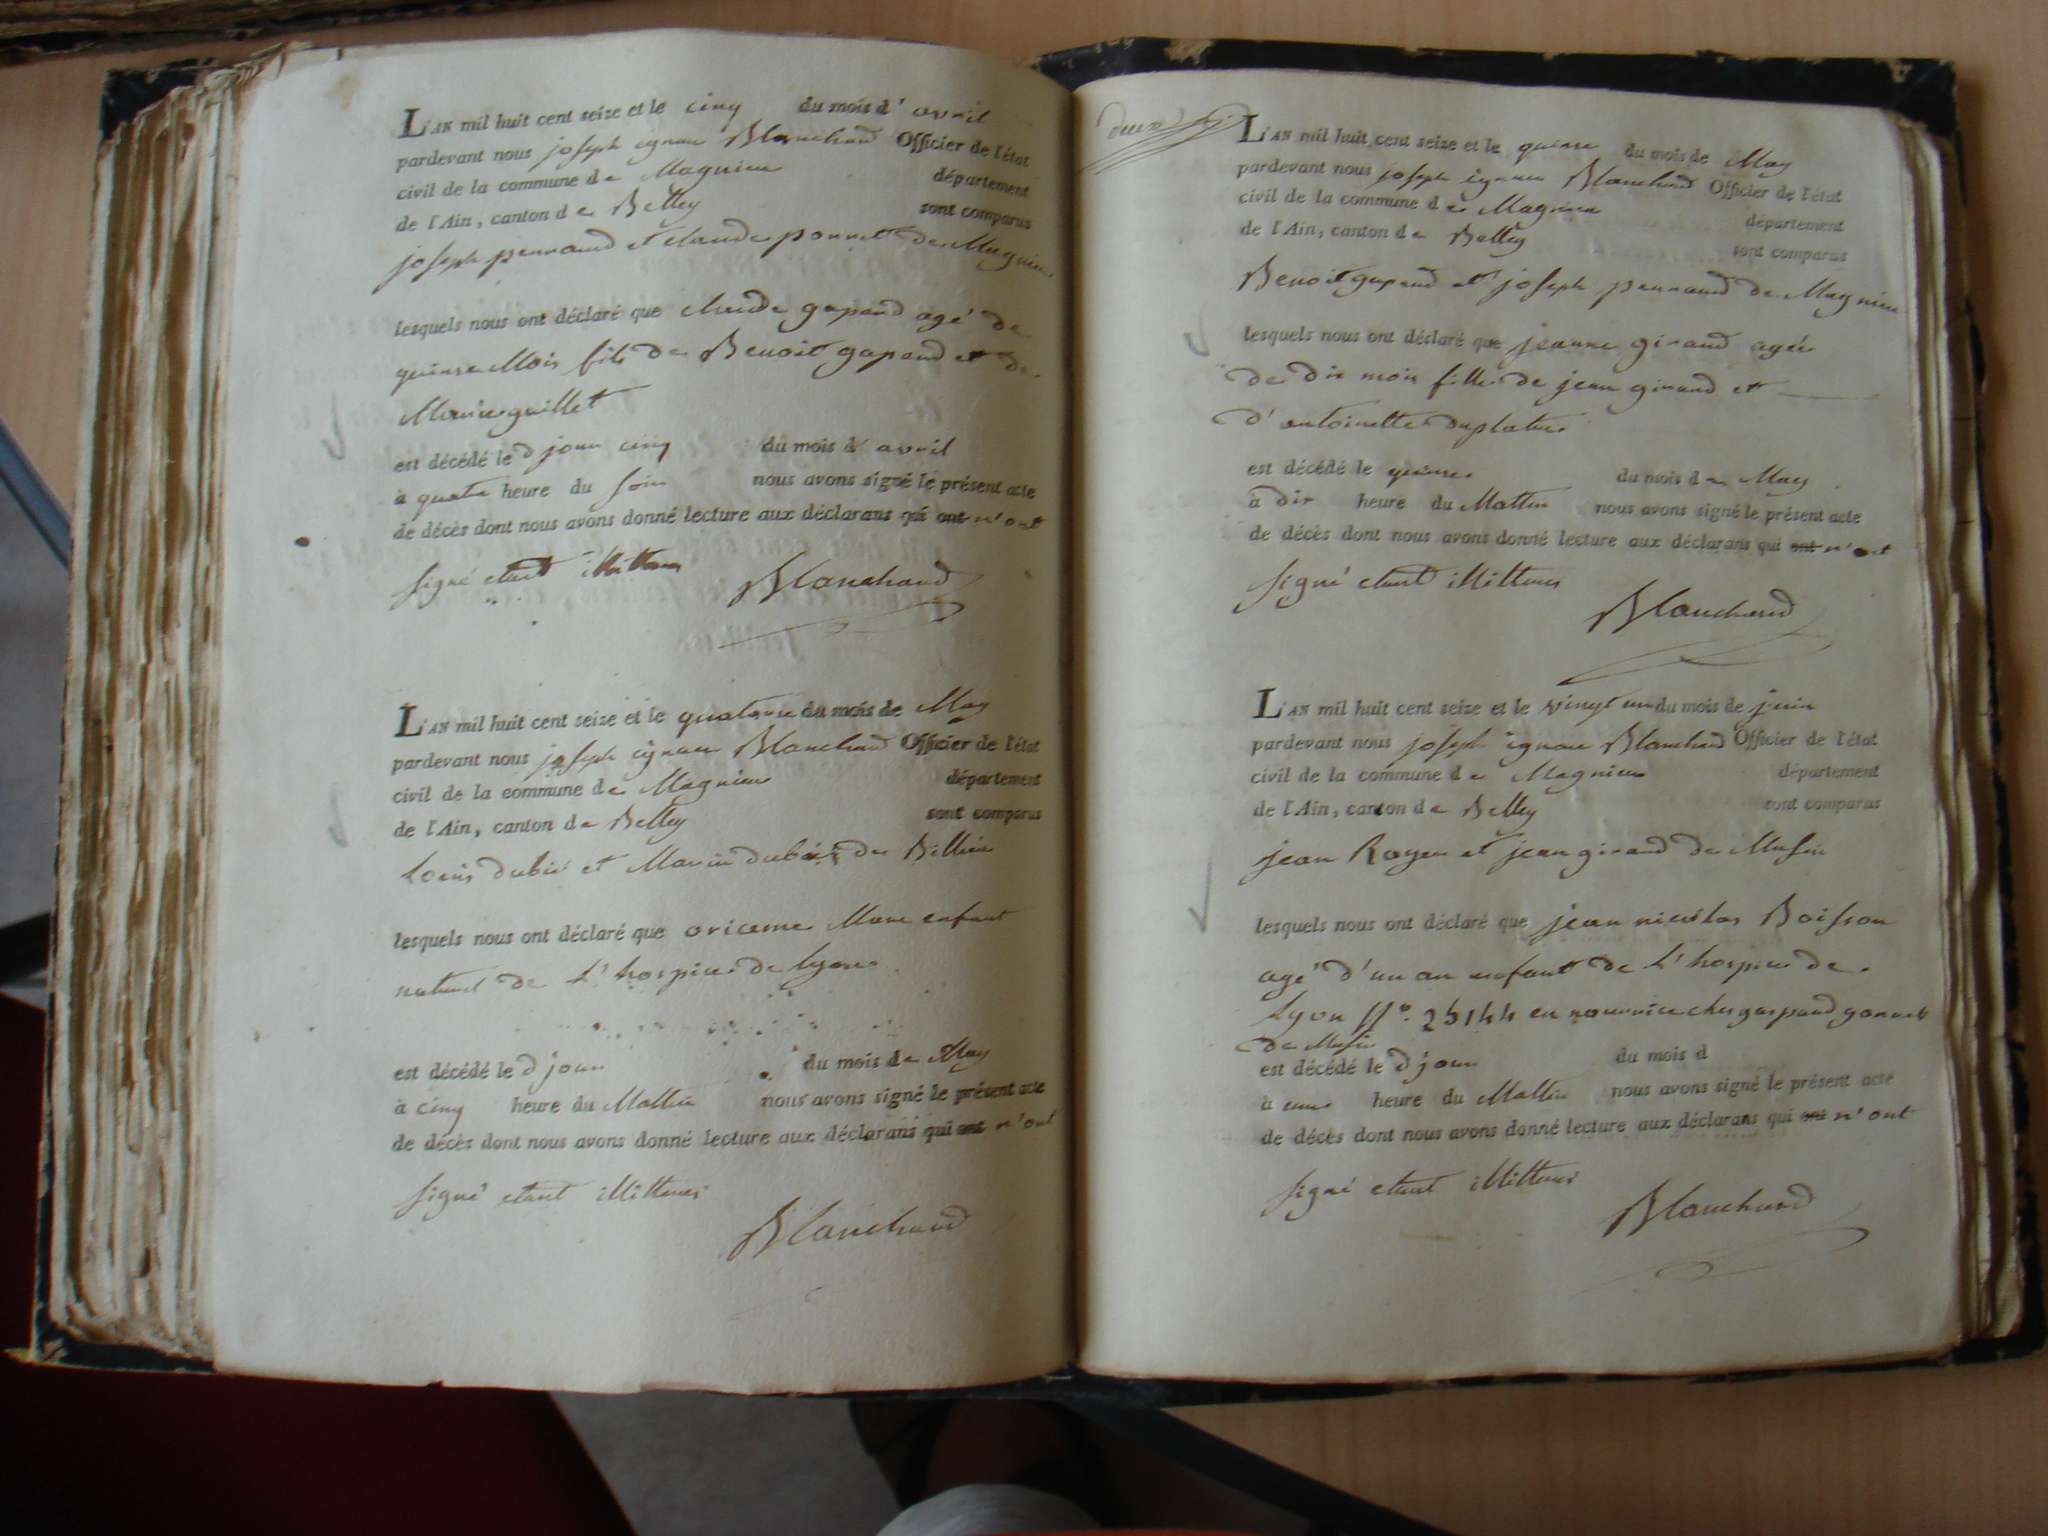 L'AN mil huit cent seize et le cinq du mois d'avril
pardevant nous joseph ignace Blanchard Officier de l'état
civil de la commune de Magnieu département
de l'Ain, canton de Belley sont comparus
joseph perraud et claude ponnet de Magnieu
lesquels nous ont déclaré que claude gapand agé de
quinse Mois fils de Benoit gapand et de
Marie guillet
est décédé le d jour cinq du mois d avril
à quatre heure du soir nous avons signé le présent acte
de décès dont nous avons donné lecture aux déclarans qui ont n'ont
signé etant illitterés
Blanchard
L'AN mil huit cent seize et le quatorse du mois de May
pardevant nous joseph ignace Blanchard Officier de l'état
civil de la commune de Magnieu département
de l'Ain, canton de Belley sont comparus
Louis dubié et Marin dubié de Billieu
lesquels nous ont déclaré que Marc enfant
naturel de L'hospice de lyon
est décédé le d jour du mois de May
à cinq heure du Mattin nous avons signé le présent acte
de décès dont nous avons donné lecture aux déclarans qui ont n'ont
signé etant illitterés
Blanchard
deux
L'AN mil huit cent seize et le quinse du mois de May
pardevant nous joseph ignace Blanchard Officier de l'état
civil de la commune de Magnieu département
de l'Ain, canton de Belley sont comparus
Benoit gapand et joseph perraud de Magnieu
lesquels nous ont déclaré que jeanne giraud agée
de dix mois fille de jean giraud et
d'antoinette duplatre
est décédé le quinse du mois de May
à dix heure du Mattin nous avons signé le présent acte
de décès dont nous avons donné lecture aux déclarans qui ont n'ont
signé etant illitterés
Blanchard
L'AN mil huit cent seize et le vingt un du mois de juin
pardevant nous joseph ignace Blanchard Officier de l'état
civil de la commune de Magnieu département
de l'Ain, canton de Belley sont comparus
jean Royer et jean giraud de Musin
lesquels nous ont déclaré que jean nicolas Boisson
agé d'un an enfant de L'hospice de
Lyon No. 25144 en nourrice ches gaspard gonnet
de Musin
est décédé le d jour du mois d
à une heure du Mattin nous avons signé le présent acte
de décès dont nous avons donné lecture aux déclarans qui ont n'ont
signé etant illitterés
Blanchard